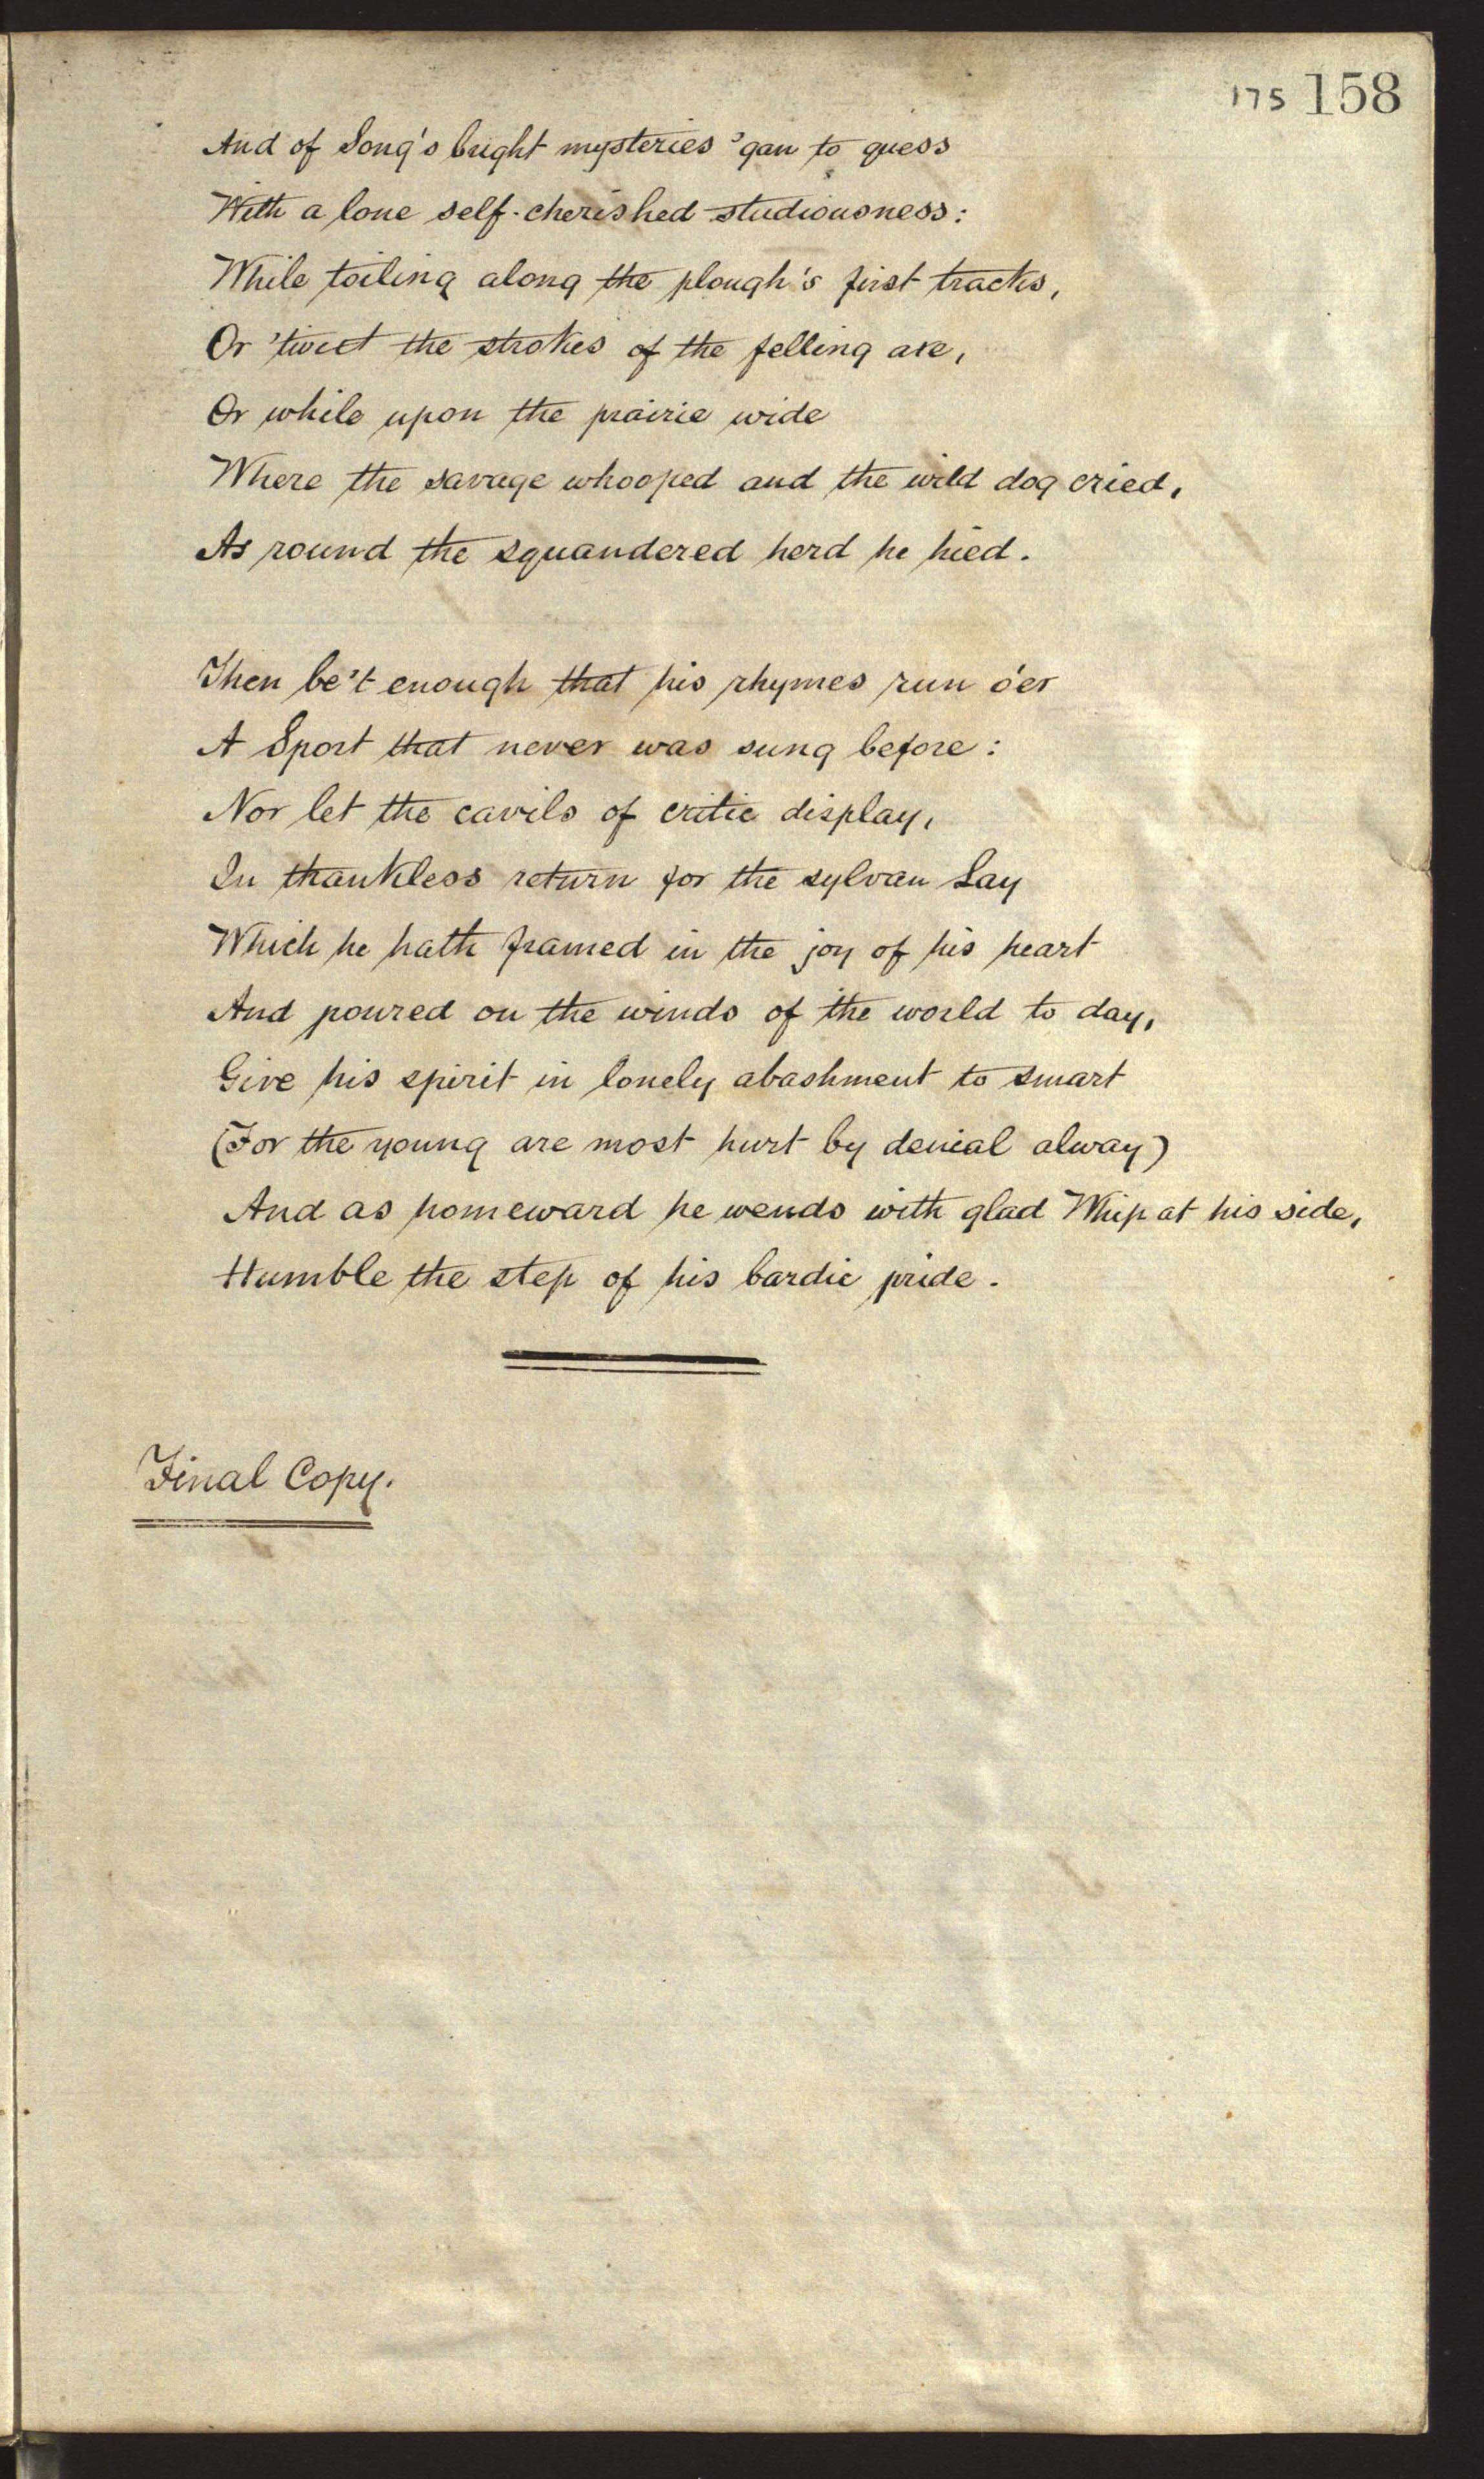 175 158
And of Song's bright mysteries 'gan to guess
With a lone self-cherished studiousness:
While toiling along the plough's first tracks,
Or 'twixt the strokes of the felling axe,
Or while upon the prairie wide
Where the savage whooped and the wild dog cried,
As round the squandered herd he hied.
Then be't enough that his rhymes run o'er
A Sport that never was sung before:
Nor let the cavils of critic display,
In thankless return for the sylvan Lay
Which he hath framed in the joy of his heart
And poured on the winds of the world to day,
Give his spirit in lonely abashment to smart
(For the young are most hurt by denial alway)
And as homeward he wends with glad Whip at his side,
Humble the step of his bardic pride.
Final Copy.